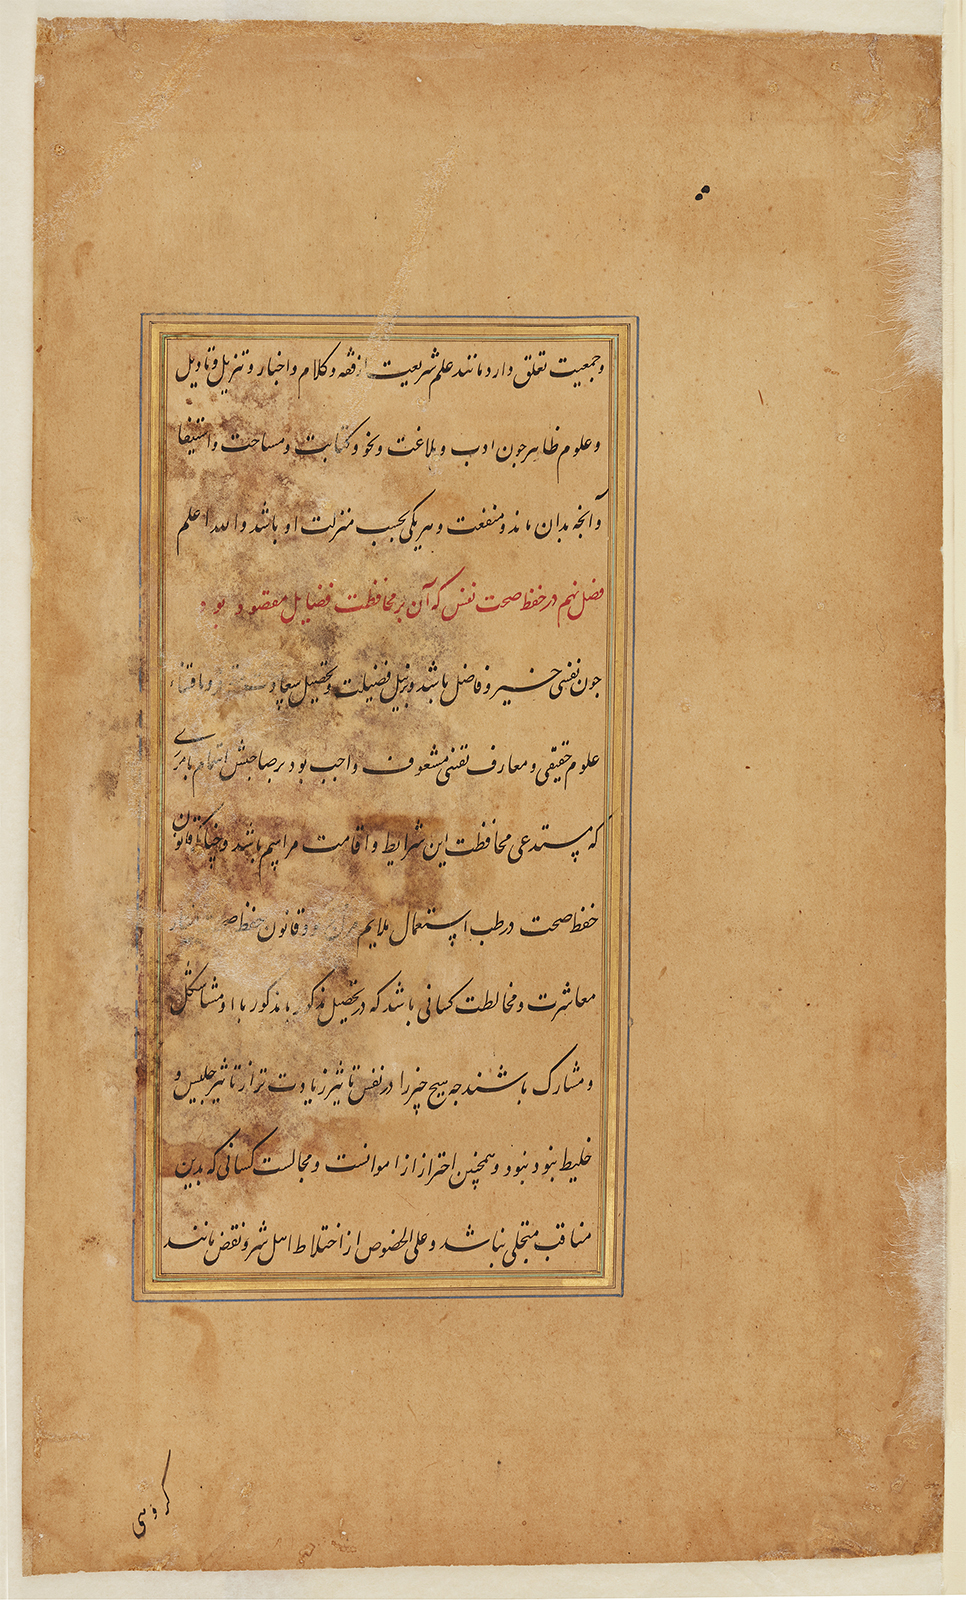 و جمعیت تعلق دارد مانند علم شریعت از فقه و کلام و اخبار و تنزیل و تاویل
و علوم ظاهر جون ادب و بلاغت و نحو و کتابت و مساحت و استیفا
و آنجه بدان ماند و منفعت و هر یکی بحسب منزلت او باشد والله اعلم
فصل نهم در حفظ صحت نفس که آن بر محافظت فضایل مقصور بود
جون نفس خیر و فاضل باشد و بر نیل فضیلت و تحصیل سعادت و اقتناء
علوم حقیقی و معارف یقینی مشعوف واجب بود بر صاحبش اهتمام بامری
که مستدعی محافظت این شرایط و اقامت مراسم باشد و جنانکه قانون
حفظ صحت در طب استعمال ملایم و قانون حفظ
معاشرت و مخالطت کسانی باشد که در تحصیل مذکور با او مشاکل
و مشارک باشند جه هیچ جیز را در نفس تاثیر زیادت تر از تاثیر جلیس و
خلیط نبود و همچنین احتراز از موانست و مجالست کسانی که بدین
مناقب متحلی نباشد و علی الخصوص از اختلاط اهل شر و نقص مانند
کروهی